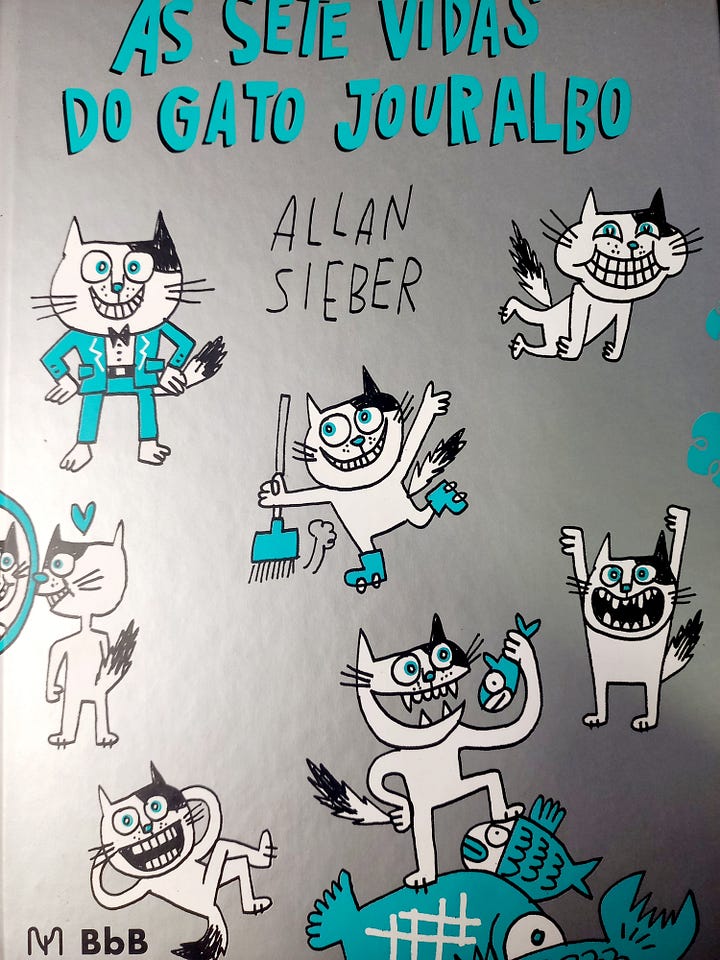 AS SETE VIDAS
DO GATO JOURALBO
ALLAN
SIEBER
BbB